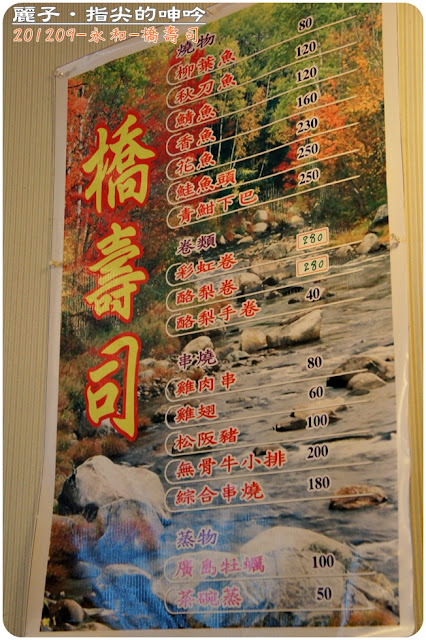 麗子·指尖的呻吟
201209-永和-橋壽司
橋壽司
燒物
柳葉魚 80
秋刀魚 120
鯖魚 120
香魚 160
花魚 230
鮭魚頭 250
青魽下巴 250
卷類
彩虹卷 280
酪梨卷 280
酪梨手卷 40
串燒
雞肉串 80
雞翅 60
松阪豬 100
無骨牛小排 200
綜合串燒 180
蒸物
廣島牡蠣 100
茶碗蒸 50